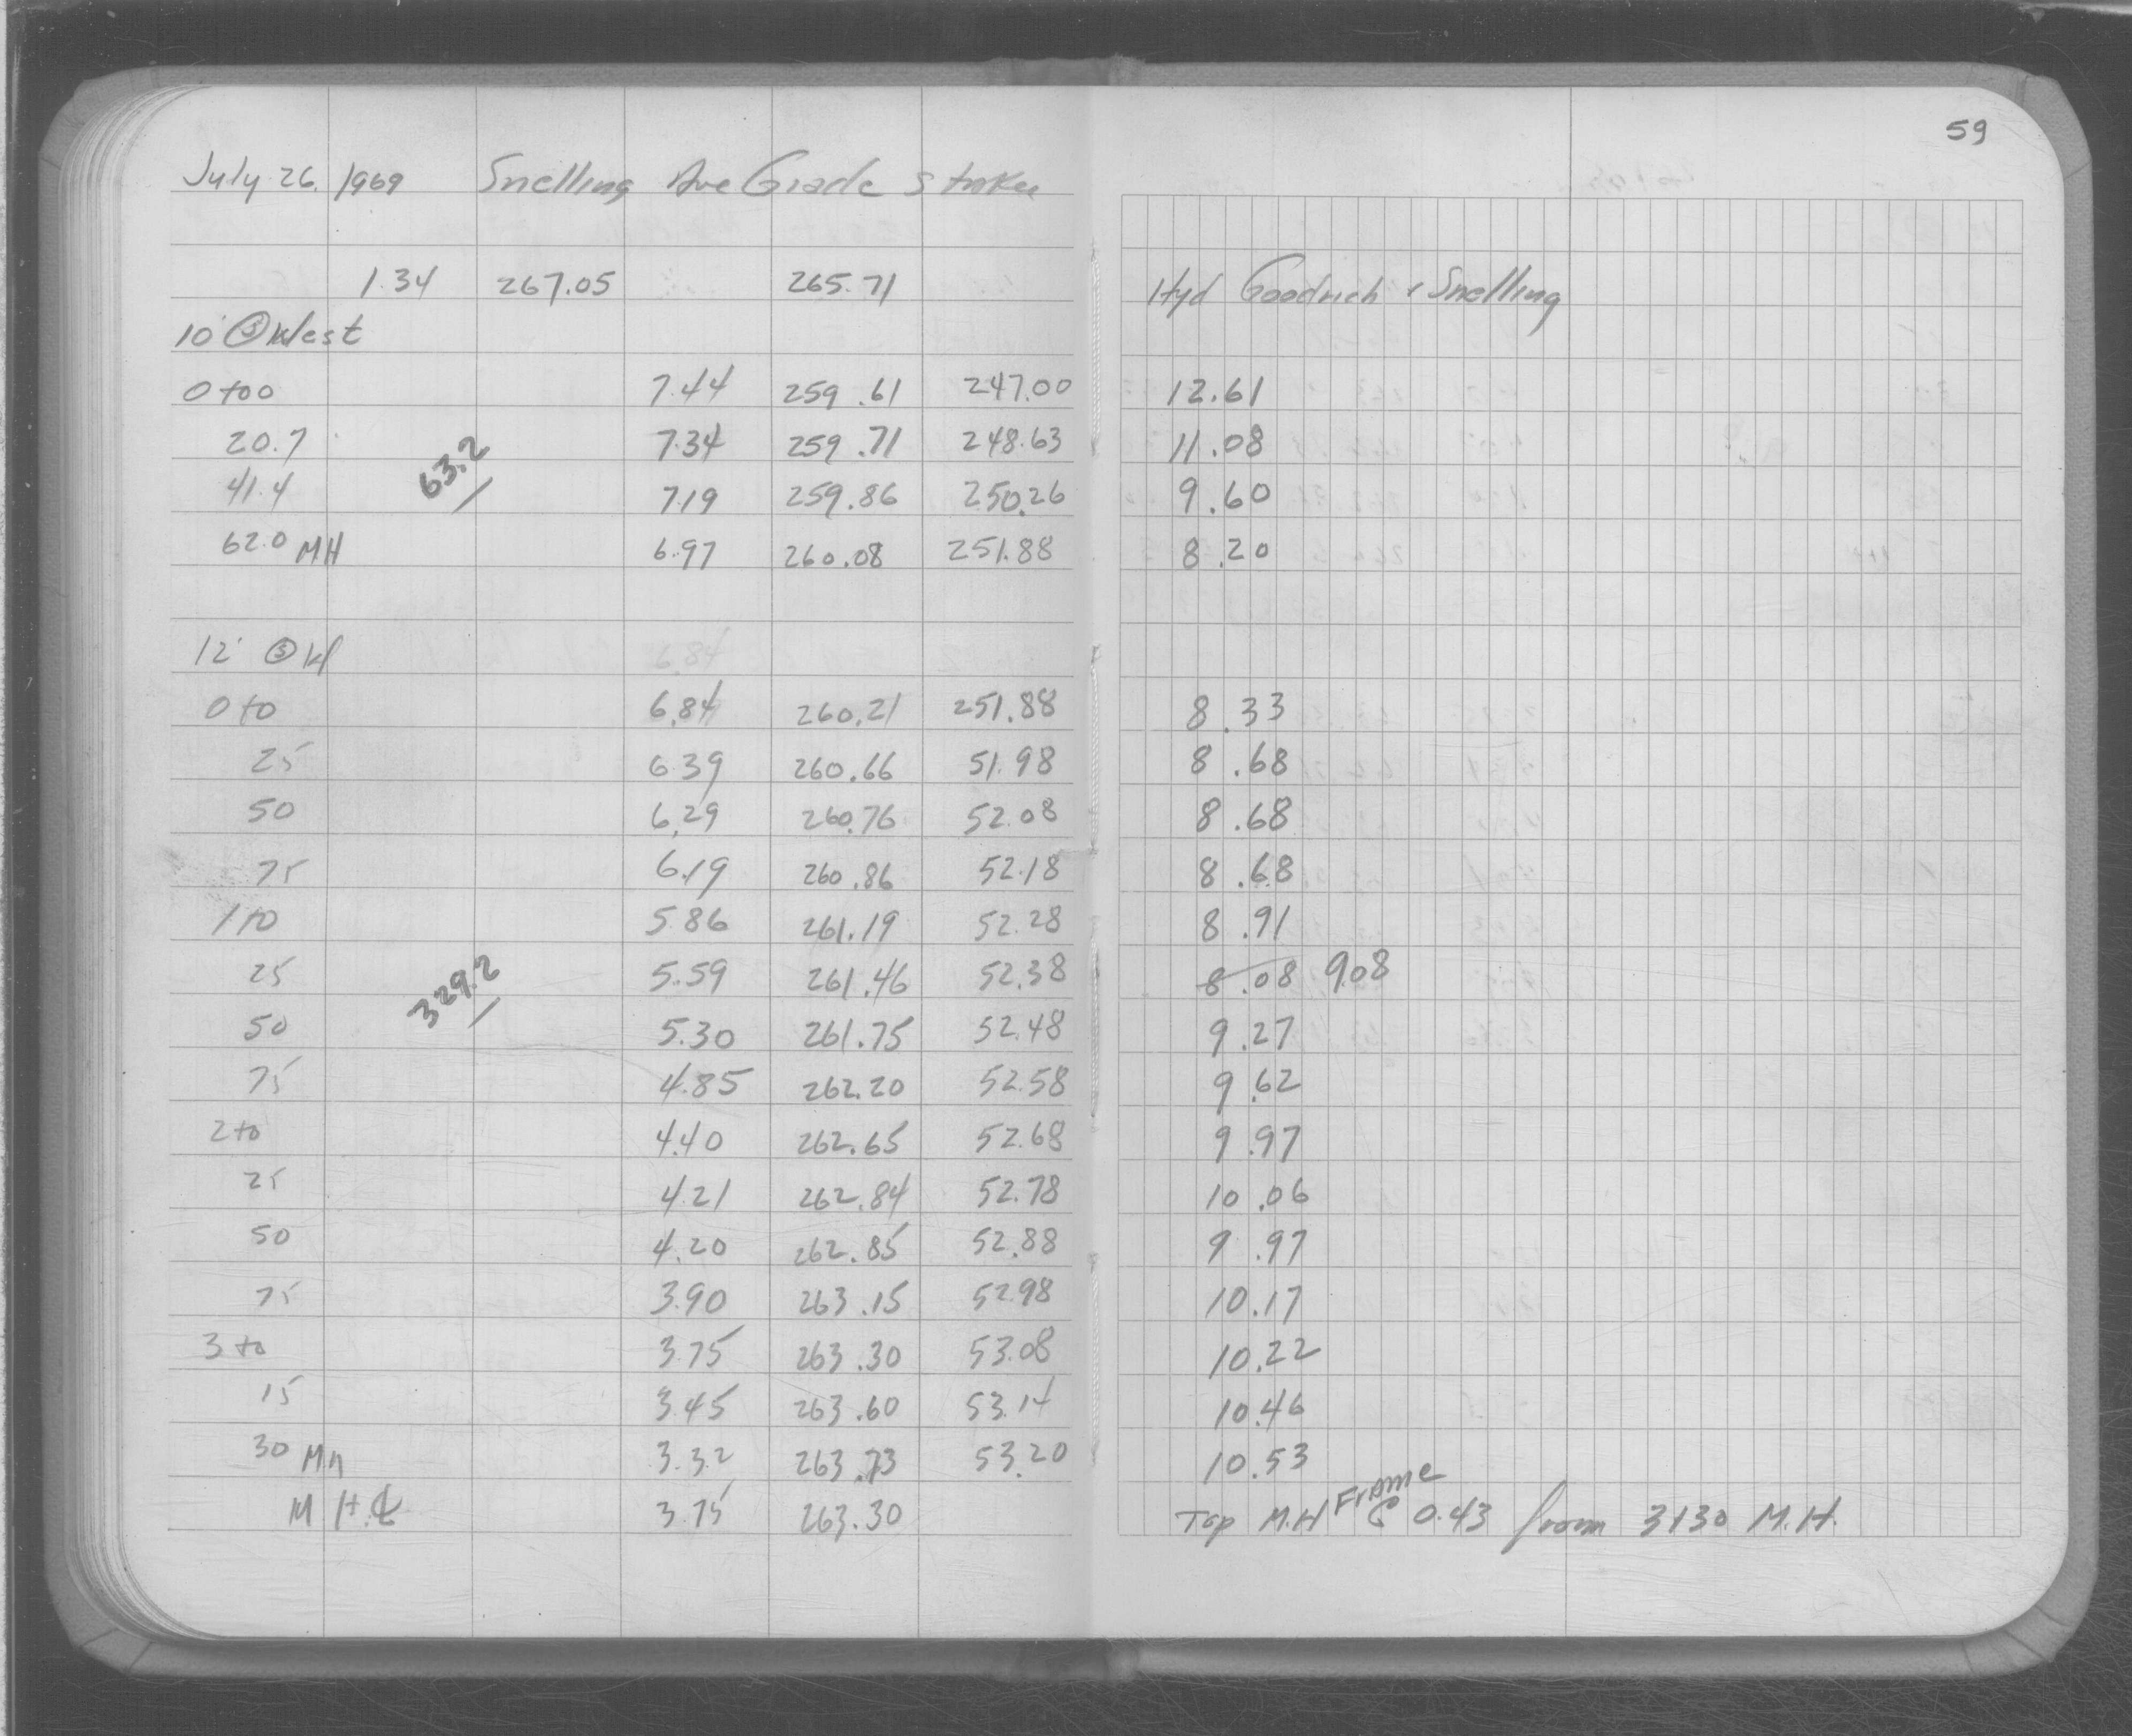 59
July 26, 1969 Snelling Ave Grade Stakes
1.34 267.05 265.71 Hyd Goodrich & Snelling
10' Ⓢ West
0+00 7.44 259.61 247.00 12.61
20.7 7.34 259.71 248.63 11.08
63.2
41.4 7.19 259.86 250.26 9.60
62.0 MH 6.97 260.08 251.88 8.20
12' Ⓢ W 6.84
0+0 6.84 260.21 251.88 8.33
25 6.39 260.66 51.98 8.68
50 6.29 260.76 52.08 8.68
75 6.19 260.86 52.18 8.68
1+0 5.86 261.19 52.28 8.91
25 5.59 261.46 52.38 8.08 9.08
329.2
50 5.30 261.75 52.48 9.27
75 4.85 262.20 52.58 9.62
2+0 4.40 262.65 52.68 9.97
25 4.21 262.84 52.78 10.06
50 4.20 262.85 52.88 9.97
75 3.90 263.15 52.98 10.17
3+0 3.75 263.30 53.08 10.22
15 3.45 263.60 53.14 10.46
30 MH 3.32 263.73 53.20 10.53
M H ℄ 3.75 263.30 Top M.H Frame @ 0.43 from 3+30 M.H.